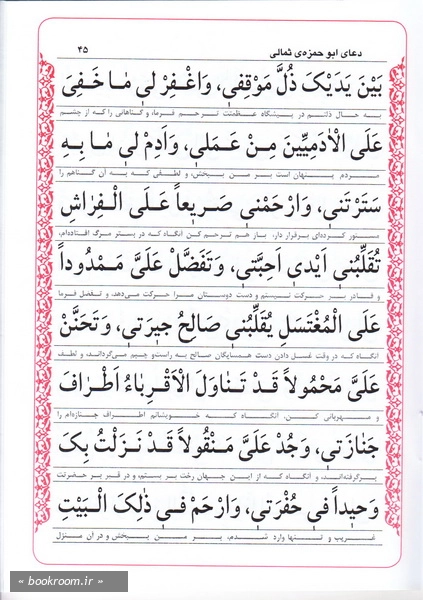 دعای ابو حمزه‌ی ثمالی ۴۵
بَیْنَ یَدَیْکَ ذُلَّ مَوْقِفی، وَاغْفِرْ لی مٰا خَفِیَ
به حال ذلتم در پیشگاه عظمتت ترحم فرما، و گناهانی را که از چشم
عَلَی الْاٰدَمِیِّینَ مِنْ عَمَلی، وَاَدِمْ لی مٰا بِهِ
مردم پنهان است بر من ببخش، و لطفی که به آن گناهم را
سَتَرْتَنی، وَارْحَمْنی صَریعاً عَلَی الْفِرٰاشِ
مستور کرده‌ای برقرار دار، باز هم ترحم کن آنگاه که در بستر مرگ افتاده‌ام،
تُقَلِّبُنی اَیْدی اَحِبَّتی، وَتَفَضَّلْ عَلَیَّ مَمْدُوداً
و قادر بر حرکت نیستم و دست دوستان مرا حرکت می‌دهد، و تفضل فرما
عَلَی الْمُغْتَسَلِ یُقَلِّبُنی صٰالِحُ جیرَتی، وَتَحَنَّنْ
آنگاه که در وقت غسل دادن دست همسایگان صالح به راست و چپم می‌گرداند، و لطف
عَلَیَّ مَحْمُولاً قَدْ تَنٰاوَلَ الْاَقْرِبٰاءُ اَطْرٰافَ
و مهربانی کن، آنگاه که خویشانم اطراف جنازه‌ام را
جَنٰازَتی، وَجُدْ عَلَیَّ مَنْقُولاً قَدْ نَزَلْتُ بِکَ
برگرفته‌اند، و آنگاه که از این جهان رخت بر بستم، و در قبر بر حضرتت
وَحیداً فی حُفْرَتی، وَارْحَمْ فی ذٰلِکَ الْبَیْتِ
غریب و تنها وارد شدم، بر من ببخش و در آن منزل
« bookroom.ir »